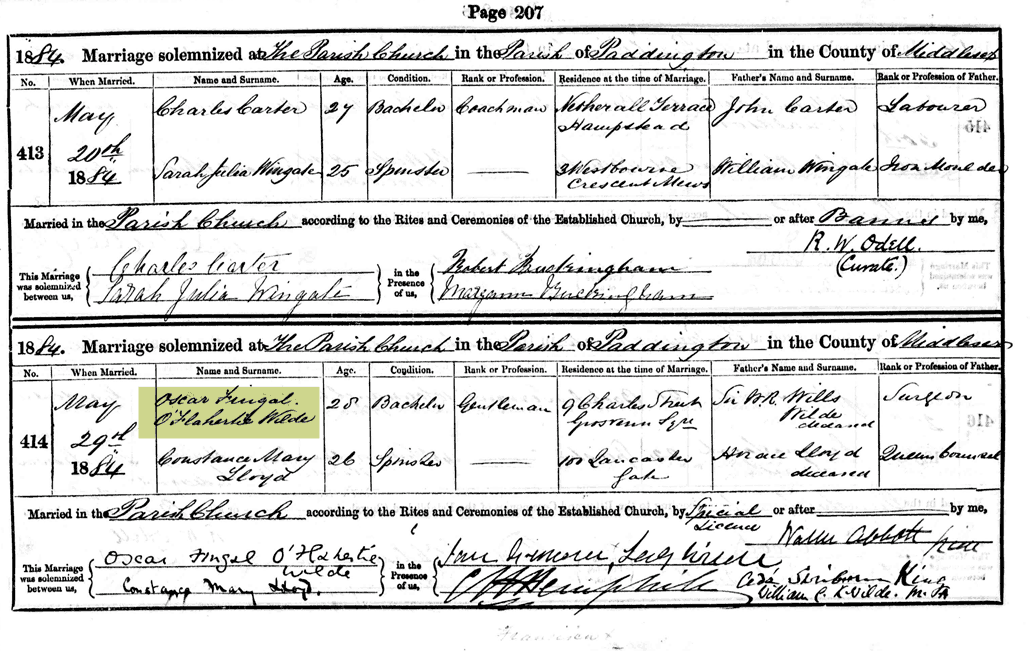 Page 207
1884. Marriage solemnized at The Parish Church in the Parish of Paddington in the County of Middlesex
No. When Married. Name and Surname. Age. Condition. Rank or Profession. Residence at the time of Marriage. Father's Name and Surname. Rank or Profession of Father.
413 May 20th 1884 Charles Carter 27 Bachelor Coachman Netherall Terrace Hampstead John Carter Labourer
Sarah Julia Wingate 25 Spinster 3 Westbourne Crescent Mews William Wingate Iron Moulder
Married in the Parish Church according to the Rites and Ceremonies of the Established Church, by or after Banns by me,
R. W. Odell.
(Curate.)
This Marriage was solemnized between us,
Charles Carter
Sarah Julia Wingate
in the Presence of us,
Robert Buckingham
Maryann Buckingham
1884. Marriage solemnized at The Parish Church in the Parish of Paddington in the County of Middlesex
No. When Married. Name and Surname. Age. Condition. Rank or Profession. Residence at the time of Marriage. Father's Name and Surname. Rank or Profession of Father.
414 May 29th 1884 Oscar Fingal O'Flahertie Wilde 28 Bachelor Gentleman 9 Charles Street Grosvenor Sqre Sir W. R. Wills Wilde deceased Surgeon
Constance Mary Lloyd 26 Spinster 100 Lancaster Gate Horace Lloyd deceased Queens Counsel
Married in the Parish Church according to the Rites and Ceremonies of the Established Church, by Special Licence or after by me,
Walter Abbott
This Marriage was solemnized between us,
Oscar Fingal O'Flahertie Wilde
Constance Mary Lloyd.
in the Presence of us,
Hemphill
King
William C. K. Wilde.